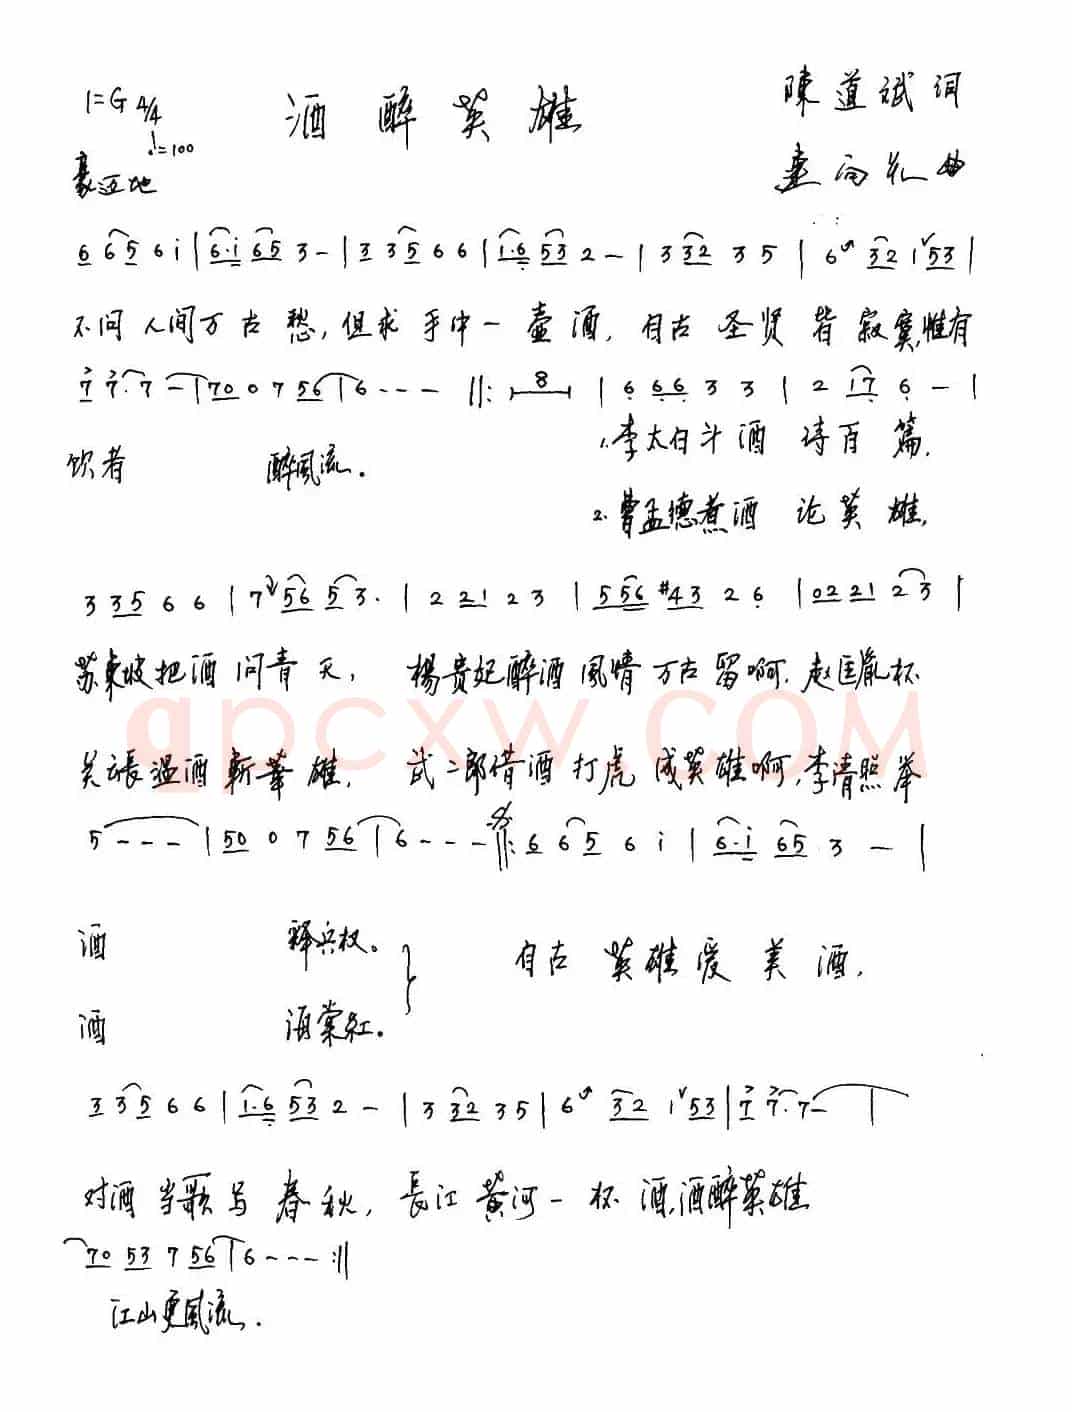 1=G 4/4
♩=100
酒醉英雄
陳道斌词
豪迈地
6 6 5 6 i | 6·i 6 5 3 - | 3 3 5 6 6 | 1·6 5 3 2 - | 3 3 2 3 5 | 6 3 2 1 5 3 |
不问人间万古愁,但求手中一壶酒,自古圣贤皆寂寞,惟有
7 7· 7 - | 7 0 0 7 5 6 | 6 - - - ‖: 8 | 6 6 6 3 3 | 2 1 7 6 - |
饮者 醉风流.
1.李太白斗酒 诗百篇,
2.曹孟德煮酒 论英雄,
3 3 5 6 6 | 7 5 6 5 3· | 2 2 1 2 3 | 5 5 6 #4 3 2 6 | 0 2 2 1 2 3 |
苏東坡把酒问青天, 楊贵妃醉酒風情万古留啊.赵匡胤杯
qpcxw.COM
关云長温酒斬華雄, 武二郎借酒打虎成英雄啊,李清照举
5 - - - | 5 0 0 7 5 6 | 6 - - - ‖: 6 6 5 6 i | 6·i 6 5 3 - |
酒 释兵权。
自古英雄爱美酒,
酒 海棠红。
3 3 5 6 6 | 1·6 5 3 2 - | 3 3 2 3 5 | 6 3 2 1 5 3 | 7 7· 7 - |
对酒当歌写春秋, 長江黄河一杯酒,酒醉英雄
7 0 5 3 7 5 6 | 6 - - - :‖
江山更風流.